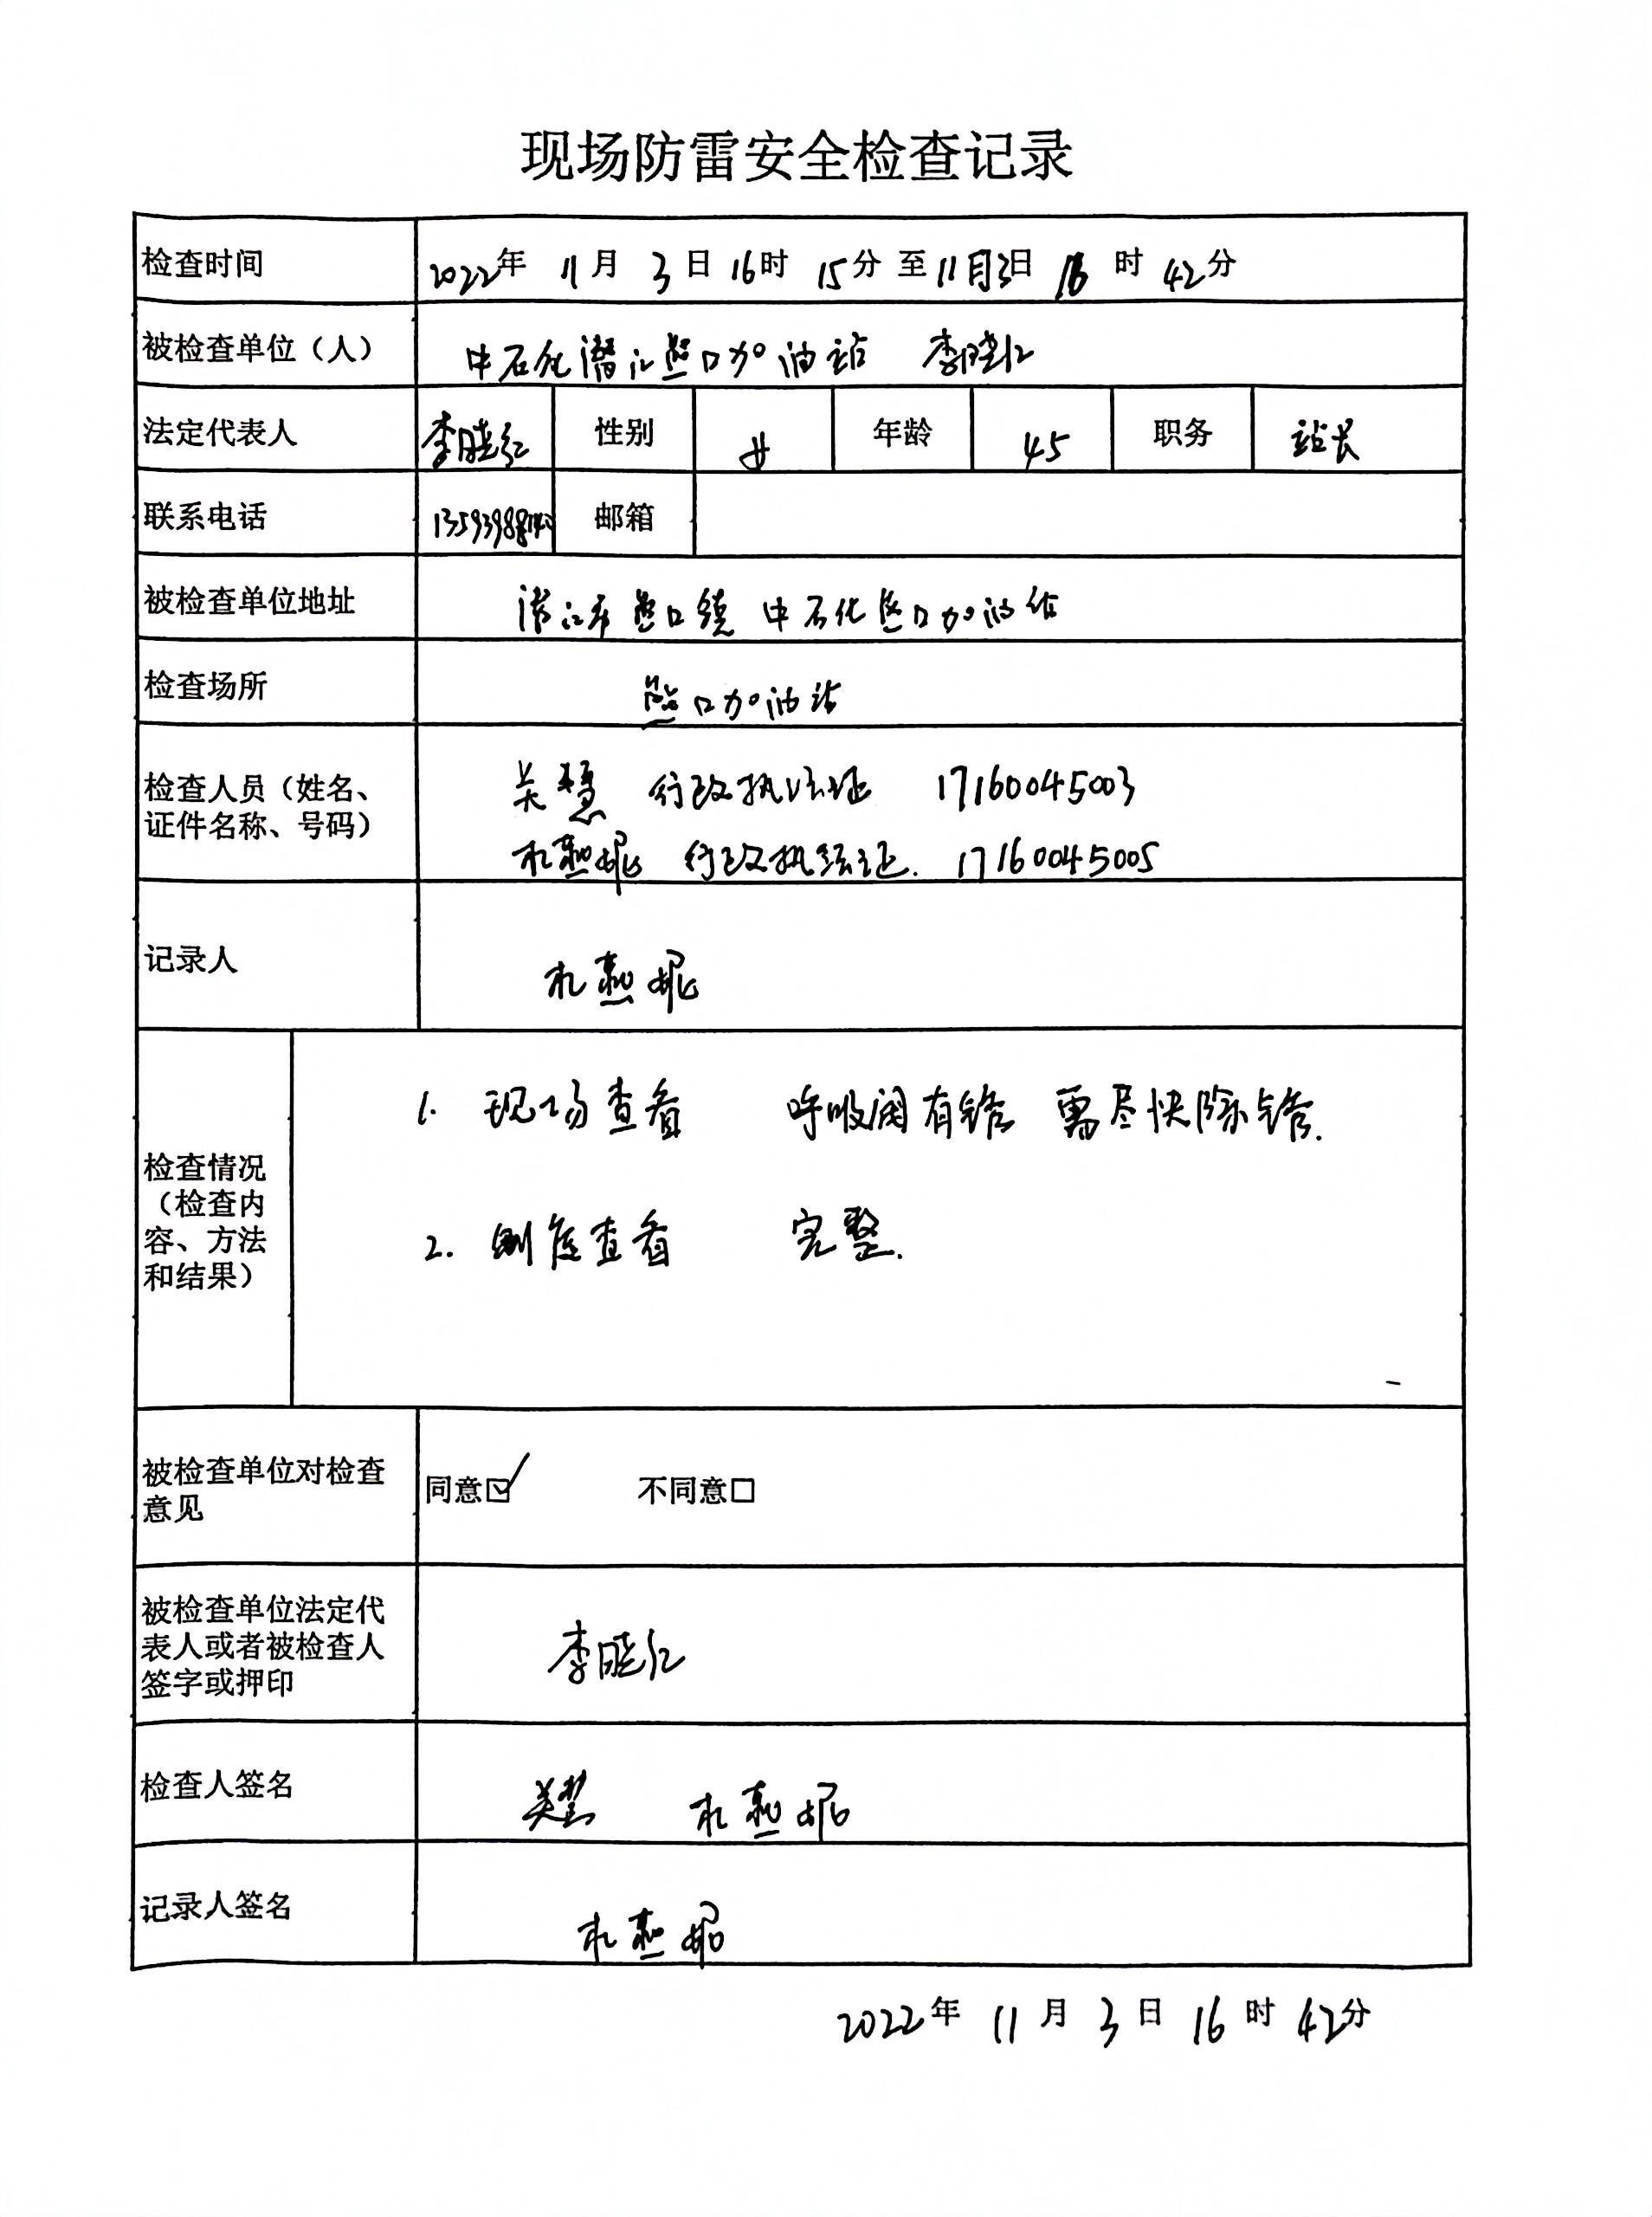 现场防雷安全检查记录
检查时间 2022年 11月 3日 16时 15分 至 11月3日 16时 42分
被检查单位（人） 中石化潜江熊口加油站 李晓红
法定代表人 李晓红 性别 女 年龄 45 职务 站长
联系电话 邮箱
被检查单位地址 潜江市熊口镇 中石化熊口加油站
检查场所 熊口加油站
检查人员（姓名、
证件名称、号码）
关慧 行政执法证 17160045003
行政执法证. 17160045005
记录人
检查情况
（检查内
容、方法
和结果）
1. 现场查看 呼吸阀有锈 需尽快除锈.
2. 制度查看 完整.
被检查单位对检查
意见
同意☑ 不同意□
被检查单位法定代
表人或者被检查人
签字或押印
李晓红
检查人签名 关慧
记录人签名
2022年 11月 3日 16时 42分